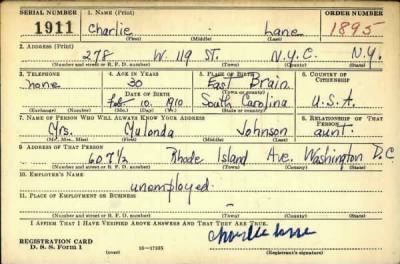 SERIAL NUMBER 1. NAME (Print) ORDER NUMBER
1911 Charlie Lane 1895
(First) (Middle) (Last)
2. ADDRESS (Print)
278 W 119 ST. N.Y.C. N.Y.
(Number and street or R. F. D. number) (Town) (County) (State)
3. TELEPHONE 4. AGE IN YEARS 5. PLACE OF BIRTH 6. COUNTRY OF CITIZENSHIP
none 30 East Brain
DATE OF BIRTH (Town or county)
Feb. 10, 1910 South Carolina U.S.A.
(Exchange) (Number) (Mo.) (Day) (Yr.) (State or country)
7. NAME OF PERSON WHO WILL ALWAYS KNOW YOUR ADDRESS 8. RELATIONSHIP OF THAT PERSON
Mrs. Mulonda Johnson aunt.
(Mr., Mrs., Miss) (First) (Middle) (Last)
9. ADDRESS OF THAT PERSON
607 1/2 Rhode Island Ave. Washington D.C
(Number and street or R. F. D. number) (Town) (County) (State)
10. EMPLOYER'S NAME
unemployed.
11. PLACE OF EMPLOYMENT OR BUSINESS
(Number and street or R. F. D. number) (Town) (County) (State)
I AFFIRM THAT I HAVE VERIFIED ABOVE ANSWERS AND THAT THEY ARE TRUE.
REGISTRATION CARD Charlie Lane
D. S. S. Form 1 (over) 16—17105 (Registrant's signature)